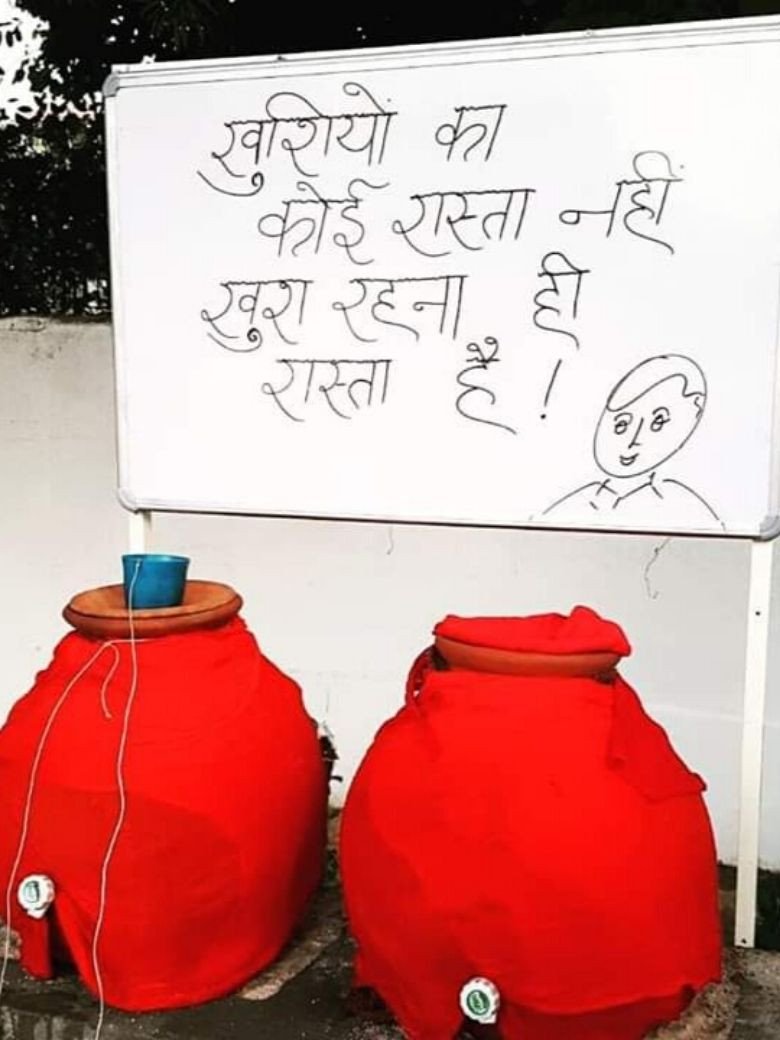 खुशियों का
कोई रास्ता नहीं
खुश रहना ही
रास्ता है!